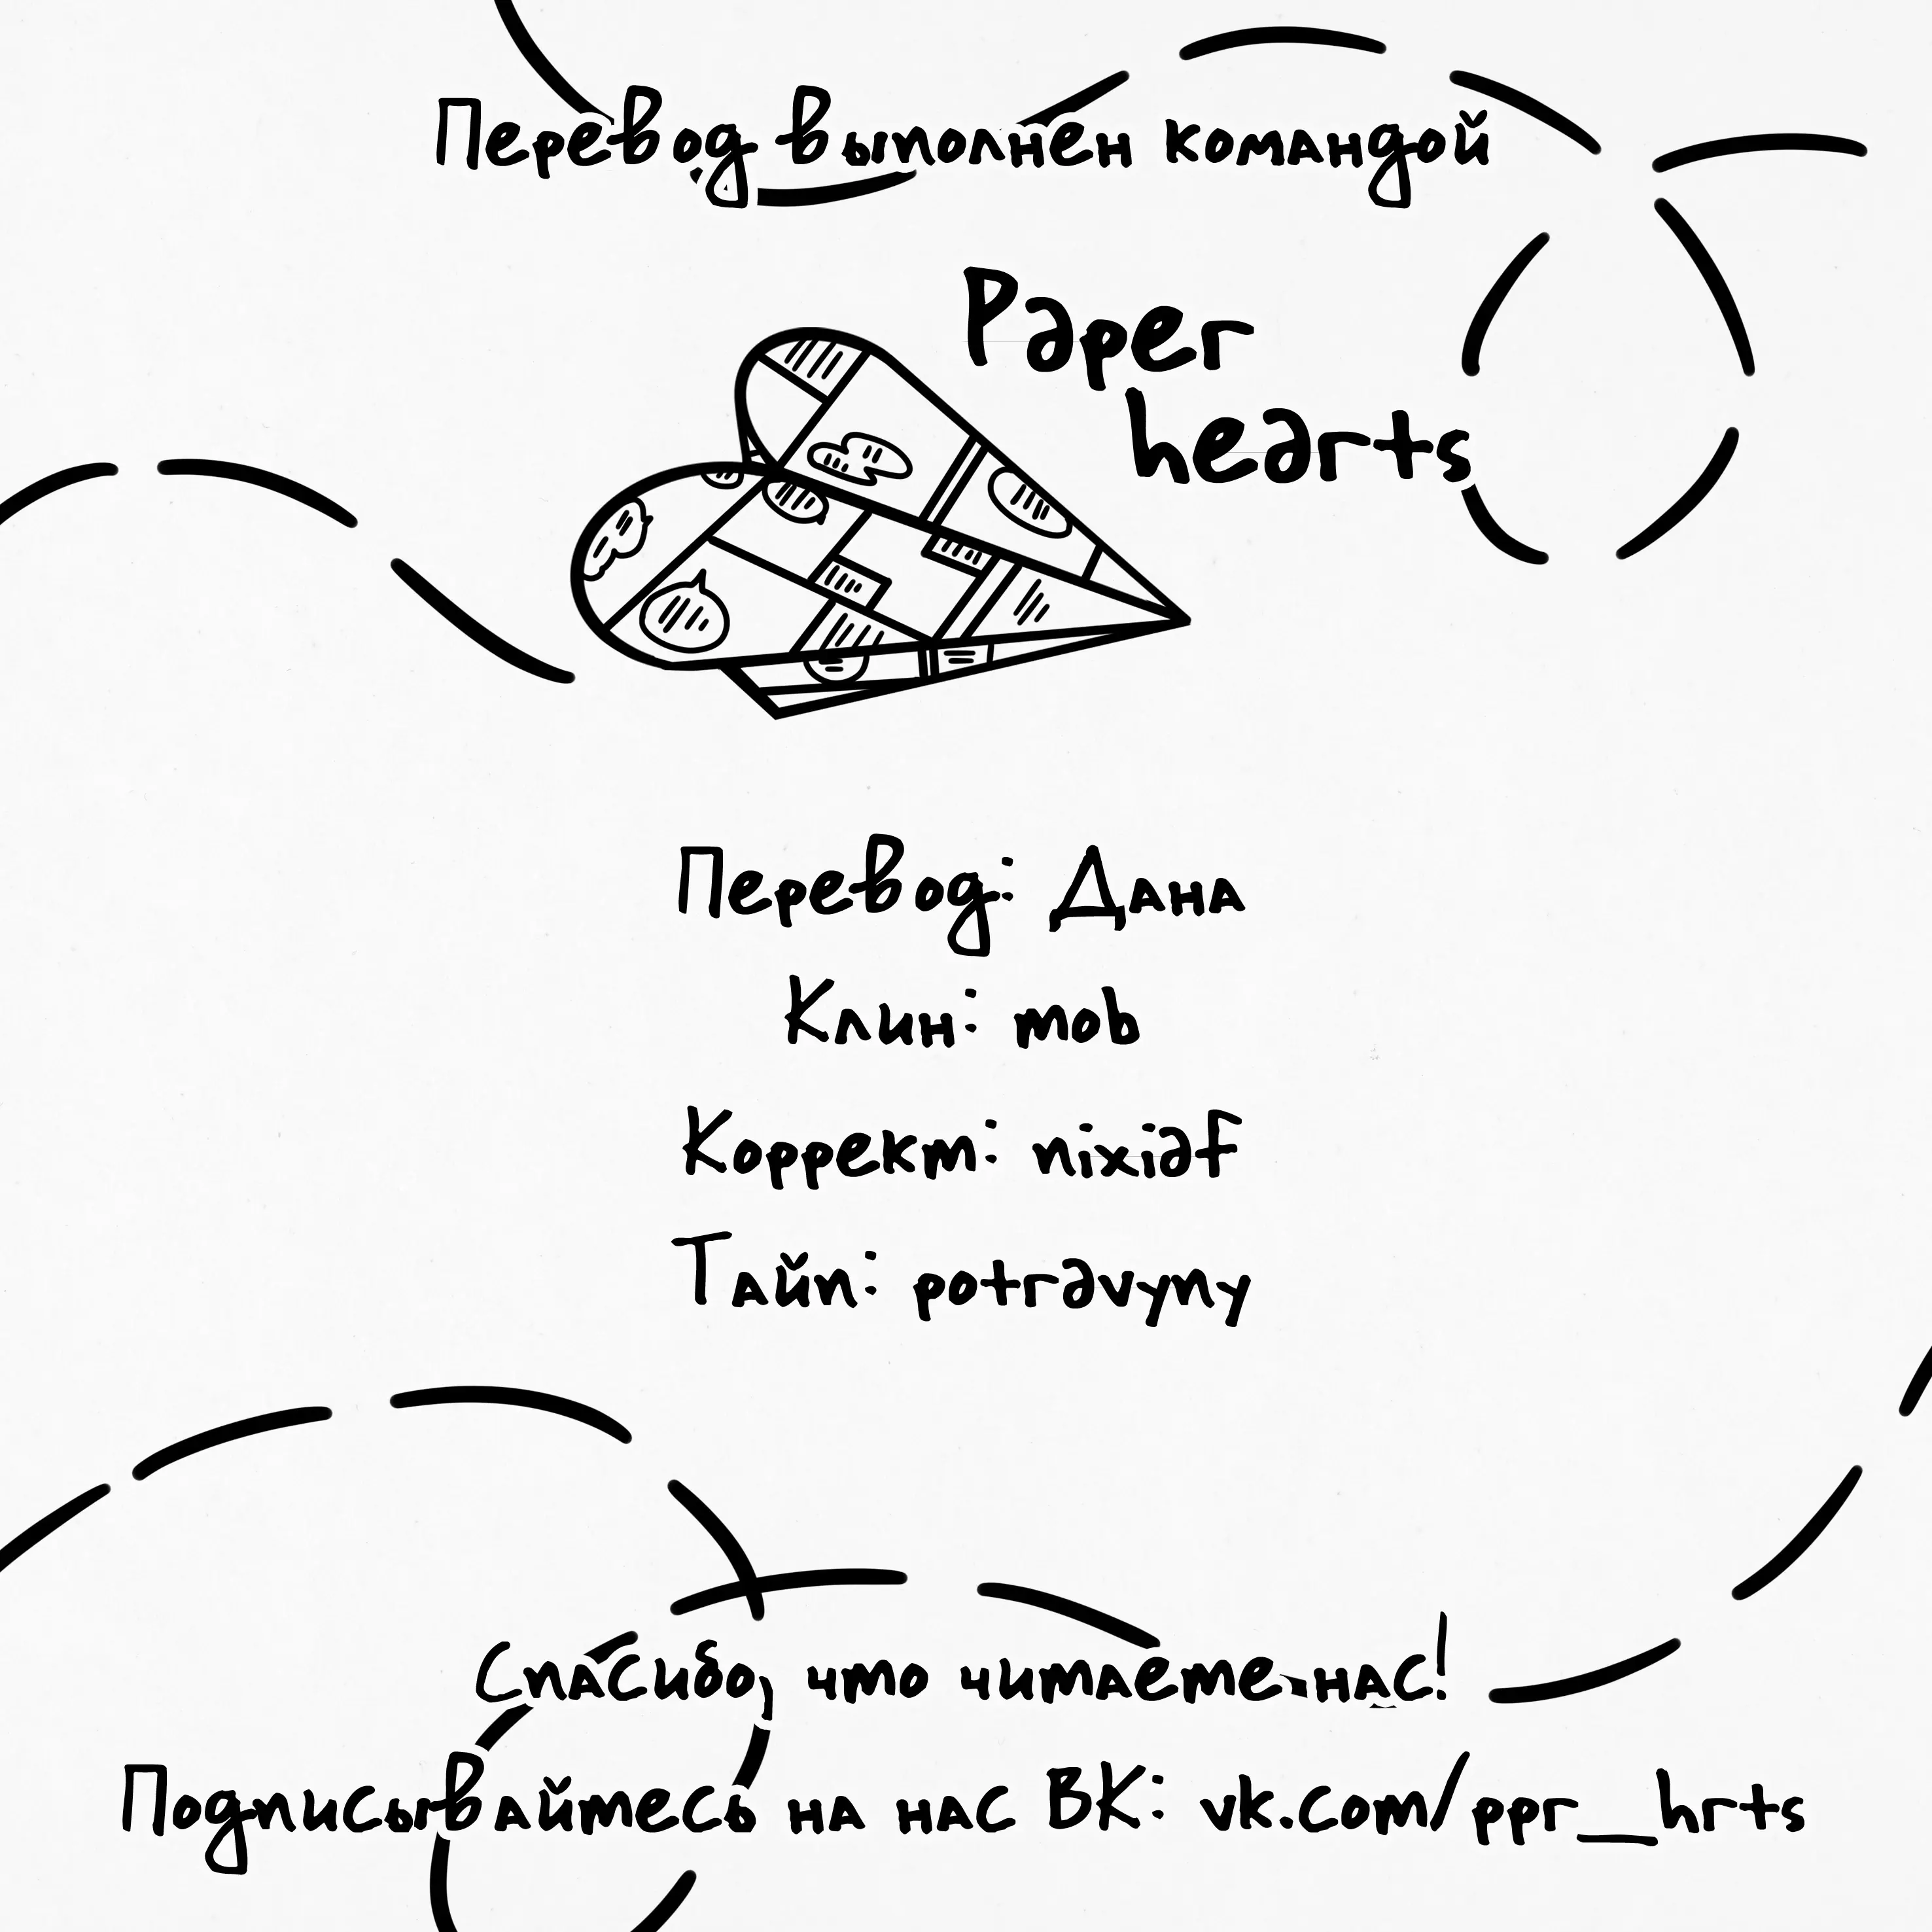 Перевод выполнен командой
Paper
hearts
Перевод: Дана
Клин: mob
Коррект: nixiaf
Тайп: potravyny
Спасибо, что читаете нас!
Подписывайтесь на нас ВК: vk.com/ppr__hrts